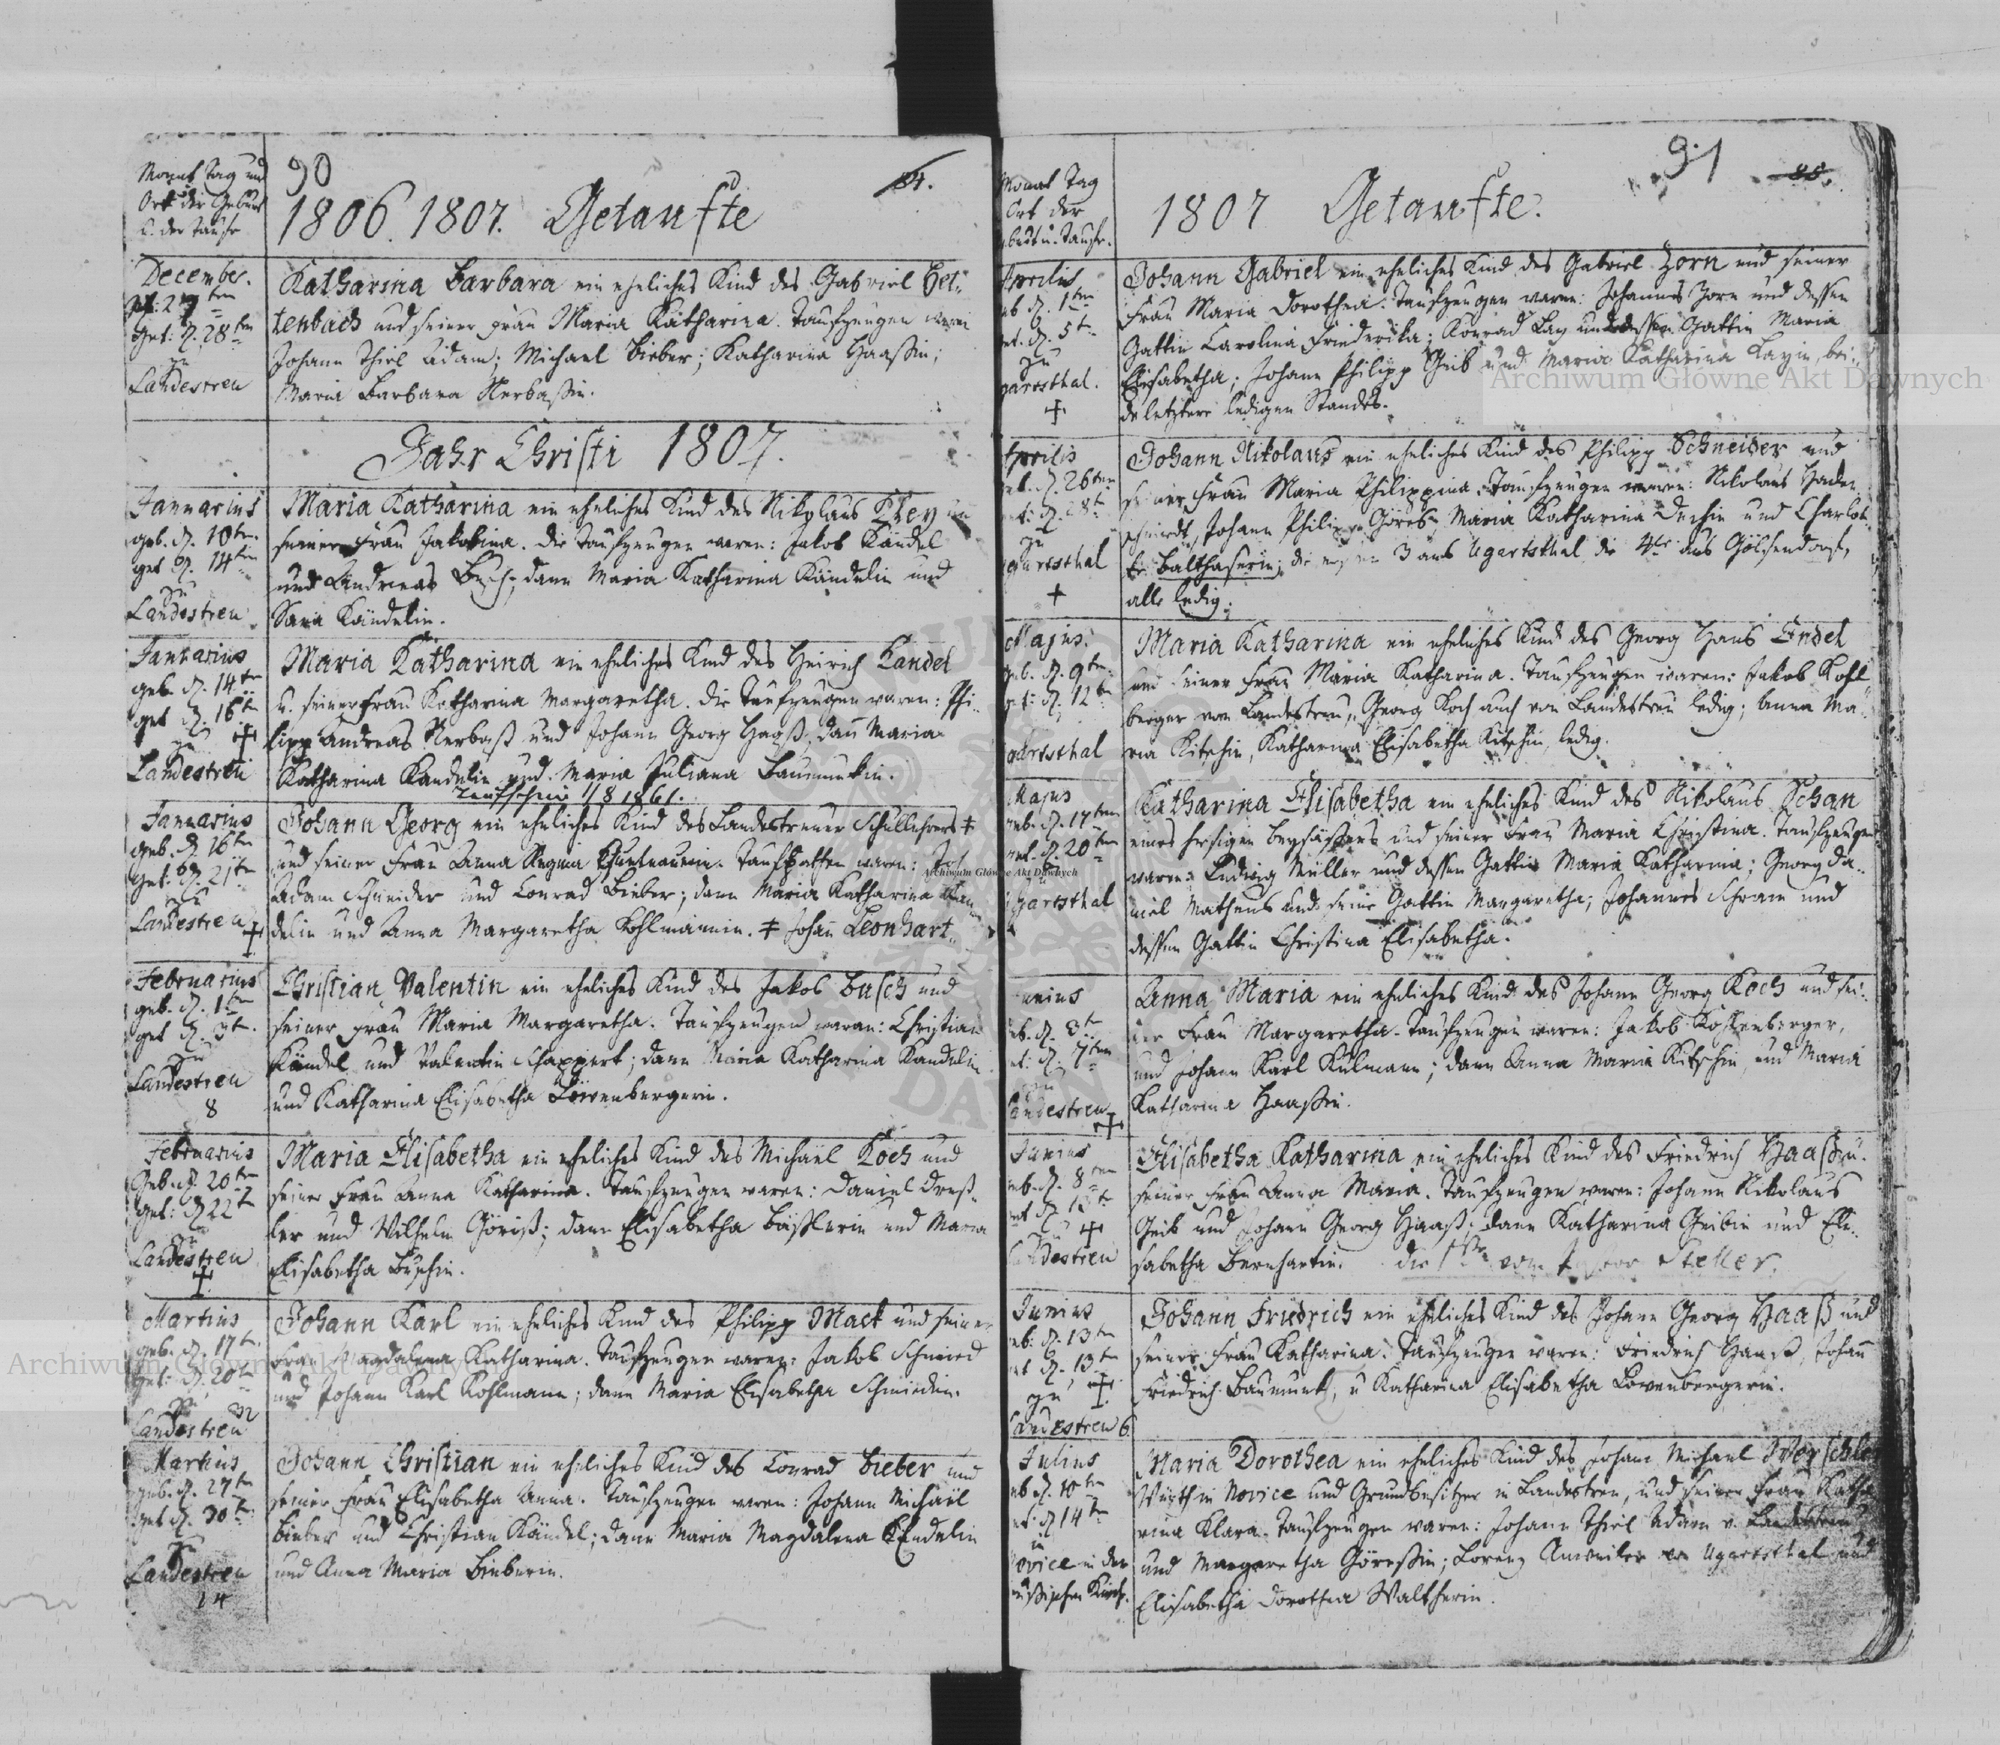 Monat Tag und
Ort der Geburt
u. der Taufe
90
84.
1806. 1807. Getaufte
December.
27ten
get: d. 28ten
zu
Landestreu
Katharina Barbara ein eheliches Kind des Gabriel Bet-
tenbach und seiner Frau Maria Katharina. Taufzeugen waren
Johann Thiel Adam; Michael Bieber; Katharina Haaßin;
Maria Barbara Nerbaßin.
Jahr Christi 1807.
Januarius
geb. d. 10ten
get d. 14ten
zu
Landestreu
Maria Katharina ein eheliches Kind des Nikolaus
seiner Frau Jakobina. Die Taufzeugen waren: Jakob Kandel
und Andreas Busch; dann Maria Katharina Kandelin und
Sara Kandelin.
Januarius
geb. d. 14ten
get d. 16ten
zu
Landestreu
Maria Katharina ein eheliches Kind des Heinrich Kandel
u. seiner Frau Katharina Margaretha. Die Taufzeugen waren: Phi-
lipp Andreas Nerbaß und Johann Georg Haaß, dan Maria
Katharina Kandelin und Maria Juliana Baumunkin.
Taufschein 1/8 1861.
Januarius
geb. d. 16ten
get. d. 21ten
zu
Landestreu
Johann Georg ein eheliches Kind des Landestreuer Schullehrers ‡
und seiner Frau Anna Regina. Taufpatten waren: Joh
Adam Schneider und Conrad Bieber; dann Maria Katharina Kan
delin und Anna Margaretha Kohlmannin. ‡ Johan Leonhart
Februarius
geb. d. 1ten
get d. 3ten
zu
Landestreu
8
Christian Valentin ein eheliches Kind des Jakob Busch und
seiner Frau Maria Margaretha. Taufzeugen waren: Christian
Kandel und Valentin Schappert; dann Maria Katharina Kandelin
und Katharina Elisabetha Löwenbergerin.
Februarius
Geb. d. 20ten
get: d. 22t
zu
Landestreu
Maria Elisabetha ein eheliches Kind des Michael Koch und
seiner Frau Anna Katharina. Taufzeugen waren: Daniel Dreß-
ler und Wilhelm Göriß; dann Elisabetha Bäßlerin und Maria
Elisabetha Buschin.
Martius
geb. d. 17t
get: d. 20t
zu 32
Landestreu
Johann Karl ein eheliches Kind des Philipp Mack und seiner
Frau Magdalena Katharina. Taufzeugen waren: Jakob Schmied
und Johann Karl Kohlmann; dann Maria Elisabetha Schmiedin.
Martius
geb. d. 27ten
get d. 30t
zu
Landestreu
14
Johann Christian ein eheliches Kind des Conrad Bieber und
seiner Frau Elisabetha Anna. Taufzeugen waren: Johann Michael
Bieber und Christian Kandel; dann Maria Magdalena Endelin
und Anna Maria Bieberin.
Monat Tag
Ort der
91
88.
1807 Getaufte.
Aprilis
d. 1ten
d. 5t
zu
Johann Gabriel ein eheliches Kind des Gabriel Zorn und seiner
Frau Maria Dorothea. Taufzeugen waren: Johannes Zorn und dessen
Gattin Carolina Friederika; Konrad Lay und dessen Gattin Maria
Elisabetha; Johann Philipp Geib und Maria Katharina Layin, bei-
de letztere ledigen Standes.
Aprilis
d. 26ten
d. 28t
zu
Johann Nikolaus ein eheliches Kind des Philipp Schneider und
seiner Frau Maria Philippina. Taufzeugen waren: Nikolaus
Johann Philipp Göres Maria Katharina und Charlot-
te Balthaserin; die ersten 3 aus Ugartsthal die 4te aus Gölsendorf,
alle ledig.
Majus.
geb. d. 9ten
get: d. 12t
Maria Katharina ein eheliches Kind des Georg Hans Endel
und seiner Frau Maria Katharina. Taufzeugen waren: Jakob Kohl
berger von Landestreu, Georg Koch auch von Landestreu ledig; Anna Ma-
ria Kitschin, Katharina Elisabetha Kitschin ledig.
Majus
geb. d. 17ten
get. d. 20ten
Katharina Elisabetha ein eheliches Kind des Nikolaus Schan
eines hiesigen Beysäßers und seiner Frau Maria Christina. Taufzeugen
waren: Ludwig Müller und dessen Gattin Maria Katharina; Georg Da-
niel Matheus und seine Gattin Margaretha; Johannes Schram und
dessen Gattin Christina Elisabetha.
Junius
geb. d. 3t
d. 7ten
zu
Landestreu
Anna Maria ein eheliches Kind des Johann Georg Koch und sei-
ner Frau Margaretha. Taufzeugen waren: Jakob
und Johann Karl Kulmann; dann Anna Maria Kitschin, und Maria
Katharina Haaßin.
Junius
geb. d. 8ten
zu
Landestreu
Elisabetha Katharina ein eheliches Kind des Friedrich Haaß u.
seiner Frau Anna Maria. Taufzeugen waren: Johann Nikolaus
Geib und Johann Georg Haaß; dann Katharina Geibin und Eli-
sabetha Bernhartin.
Junius
geb. d. 13ten
get d. 13ten
zu
Landestreu 6
Johann Friedrich ein eheliches Kind des Johann Georg Haaß und
seiner Frau Katharina. Taufzeugen waren: Friedrich Haaß, Johan
Friedrich Baumunk, u Katharina Elisabetha Löwenbergerin.
Julius
geb d. 10ten
get: d 14ten
Maria Dorothea ein eheliches Kind des Johann Michael
Wirth in Novice und Grundbesitzer in Landestreu, und seiner Frau Katha
rina Klara. Taufzeugen waren: Johann Thiel Adam v. Landestreu
und Margaretha Göreßin; Lorenz von Ugartsthal und
Elisabetha Dorothea Waltherin.
Archiwum Główne Akt Dawnych
Archiwum Główne Akt Dawnych
Archiwum Główne Akt Dawnych